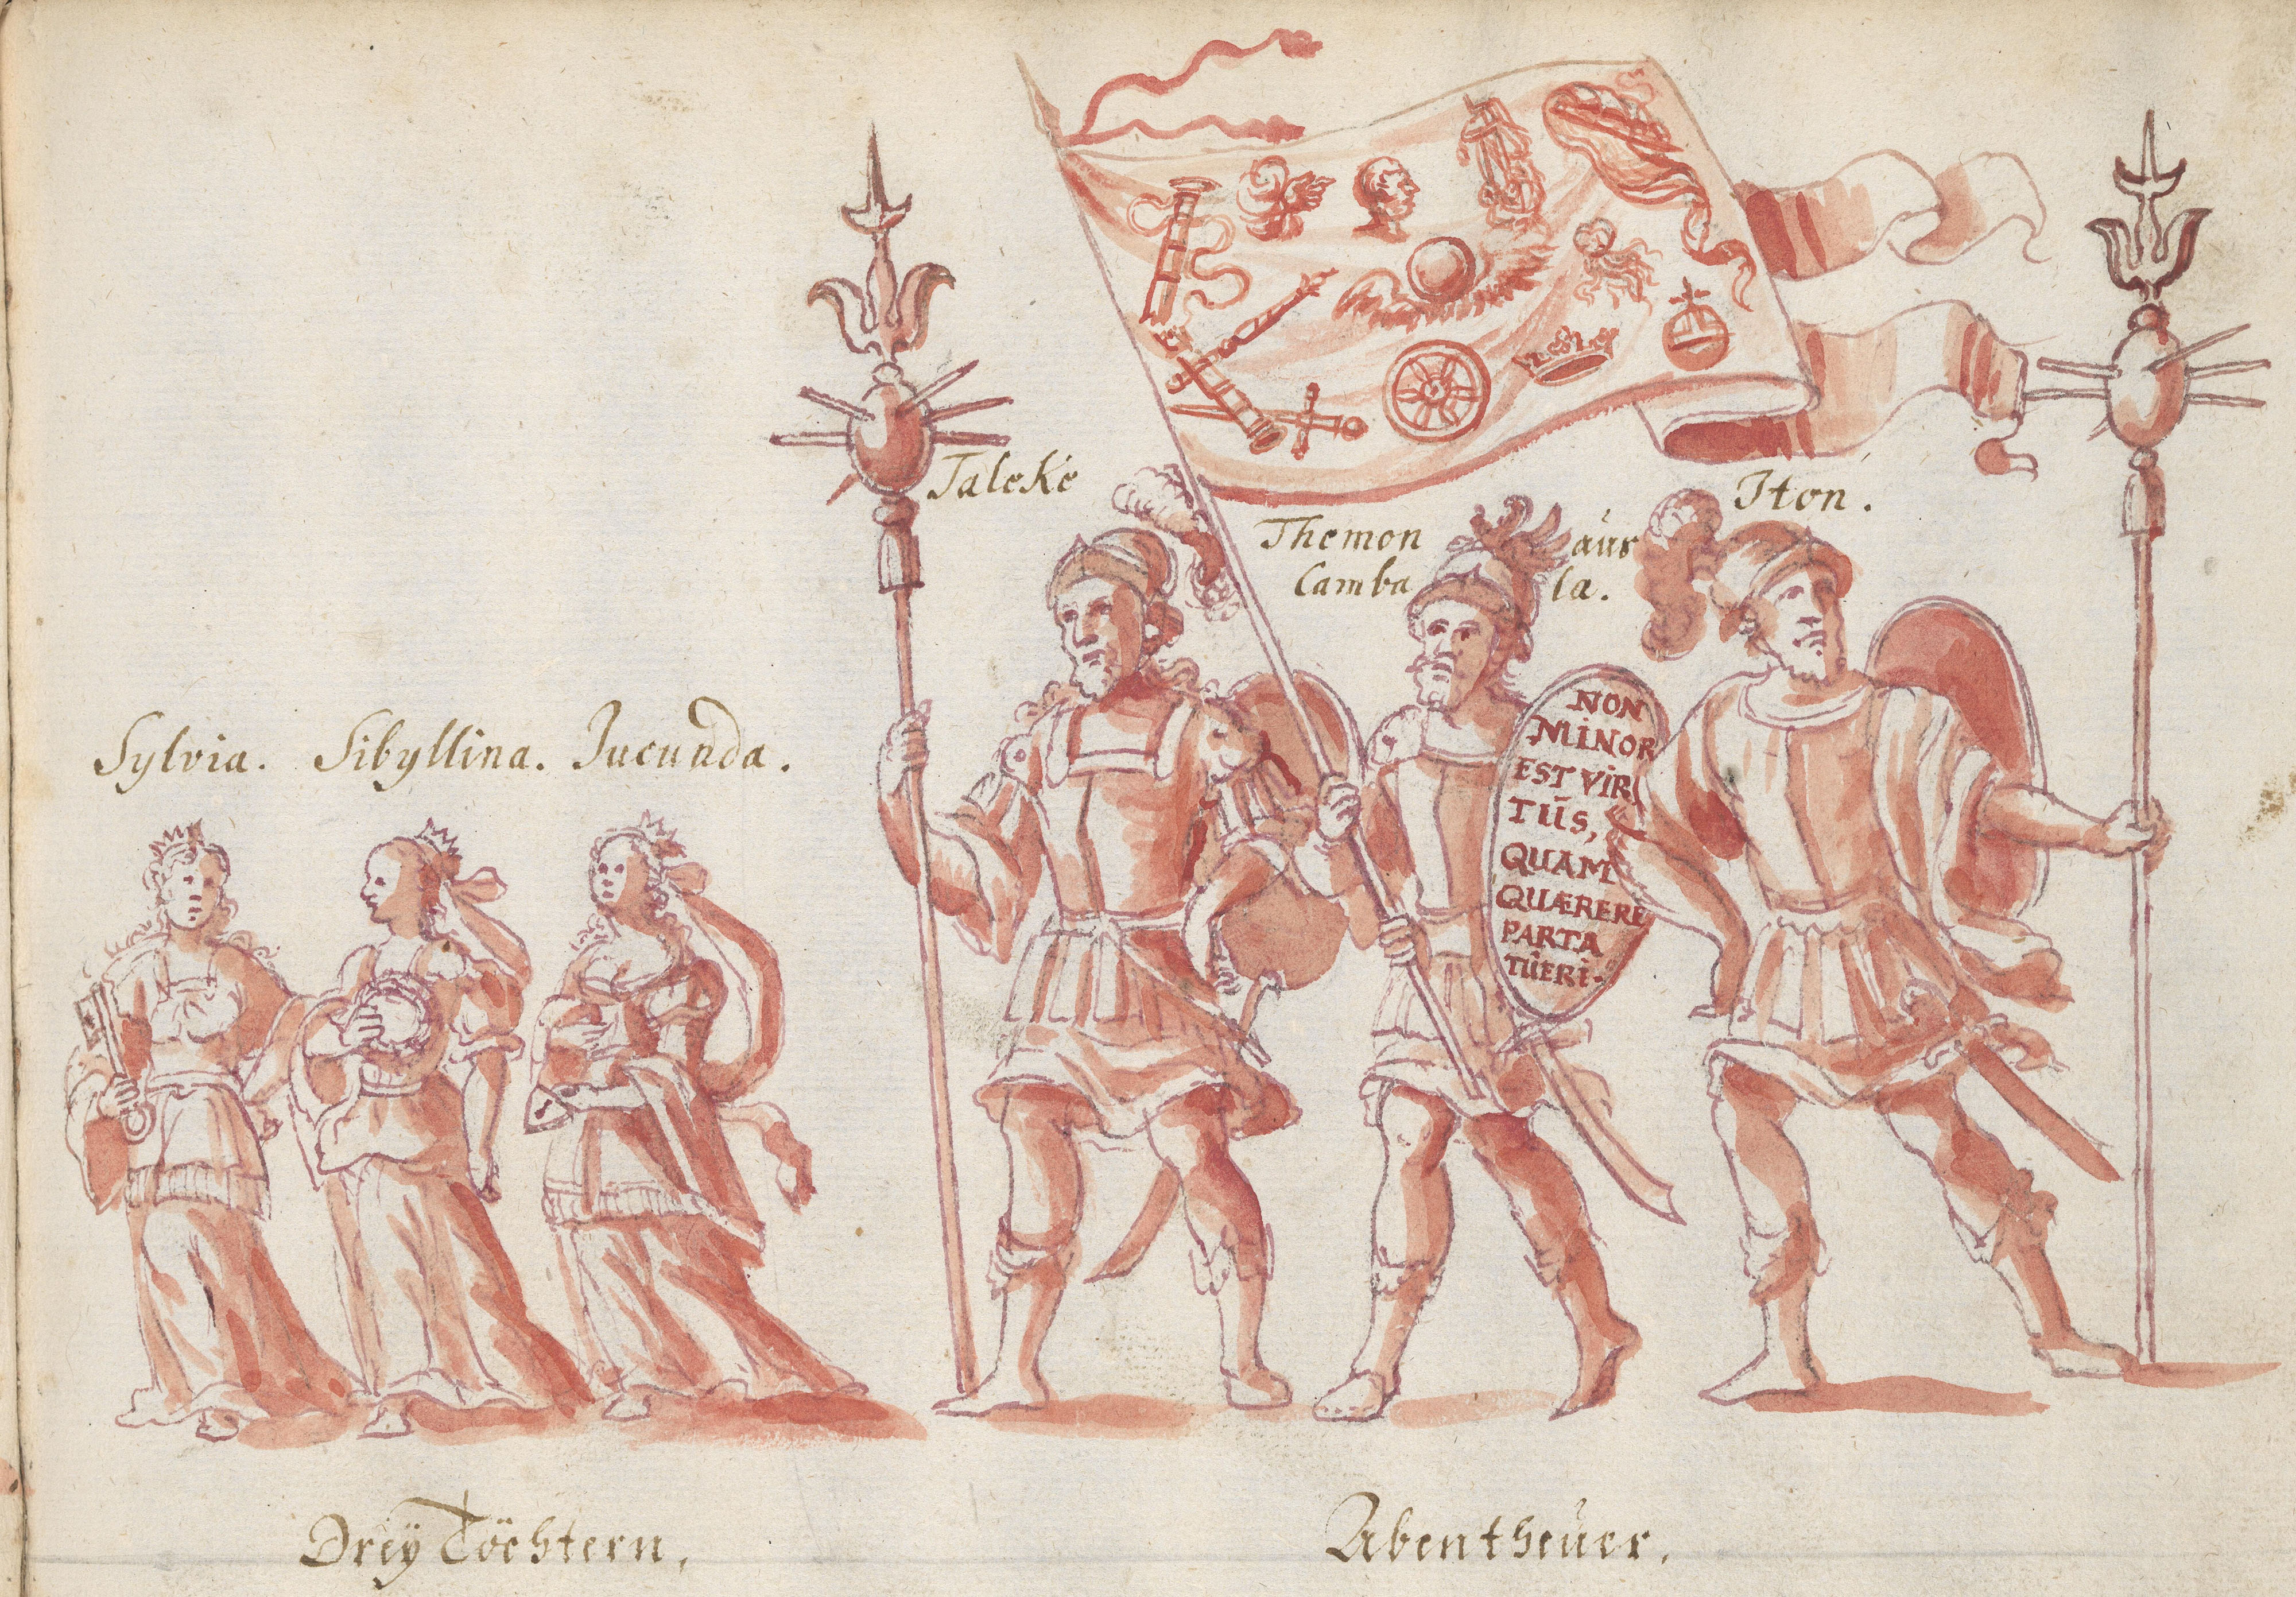 Taleke
Themon aus
Camba la.
Iton.
Sylvia. Sibyllina. Jucunda.
NON
MINOR
EST VIR
TUS,
QUAM
QUÆRERE
PARTA
TUERI.
Dreÿ Töchtern.
Abentheüer.